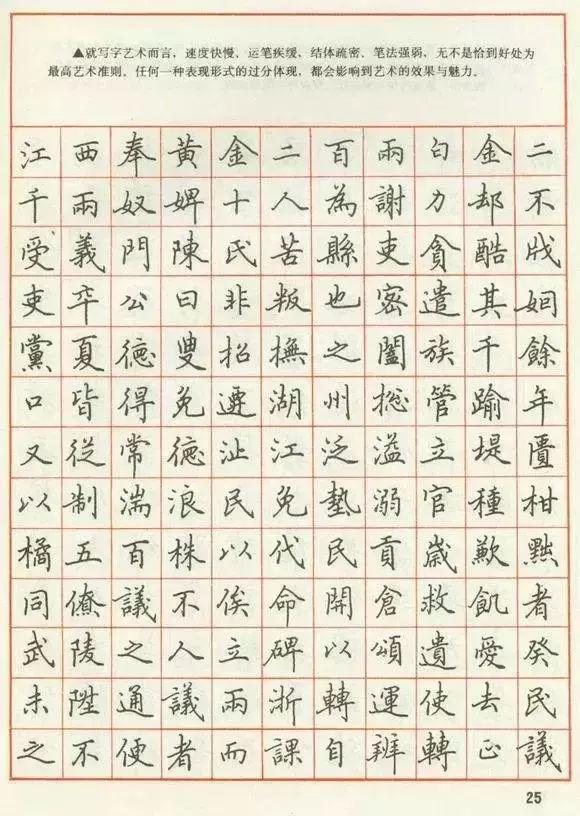 ▲就写字艺术而言，速度快慢、运笔疾缓、结体疏密、笔法强弱，无不是恰到好处为
最高艺术准则。任何一种表现形式的过分体现，都会影响到艺术的效果与魅力。
江西奉黄金二百兩白金二
千兩奴婢十人為謝力却不
受義門陳氏苦縣吏貪酷戕
吏卒公曰非叛也密遣其姻
黨夏德叟招撫之闔族千餘
口皆得免遷湖州摠管踰年
又從常德沚江泛溢立堤匽
以制湍浪民免墊溺官種柑
橘五百株以代民貢歲歉㸃
同僚議不俟命開倉救飢者
武陵之人立碑以頌遺愛癸
未陞通議兩浙轉運使去民
之不便者而課自辨轉正議
25